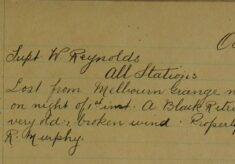 Supt W. Reynolds
All Stations
Lost from Melbourn Grange
on night of 1st inst. A Black Retri
very old, broken wind. Property
R. Murphy.